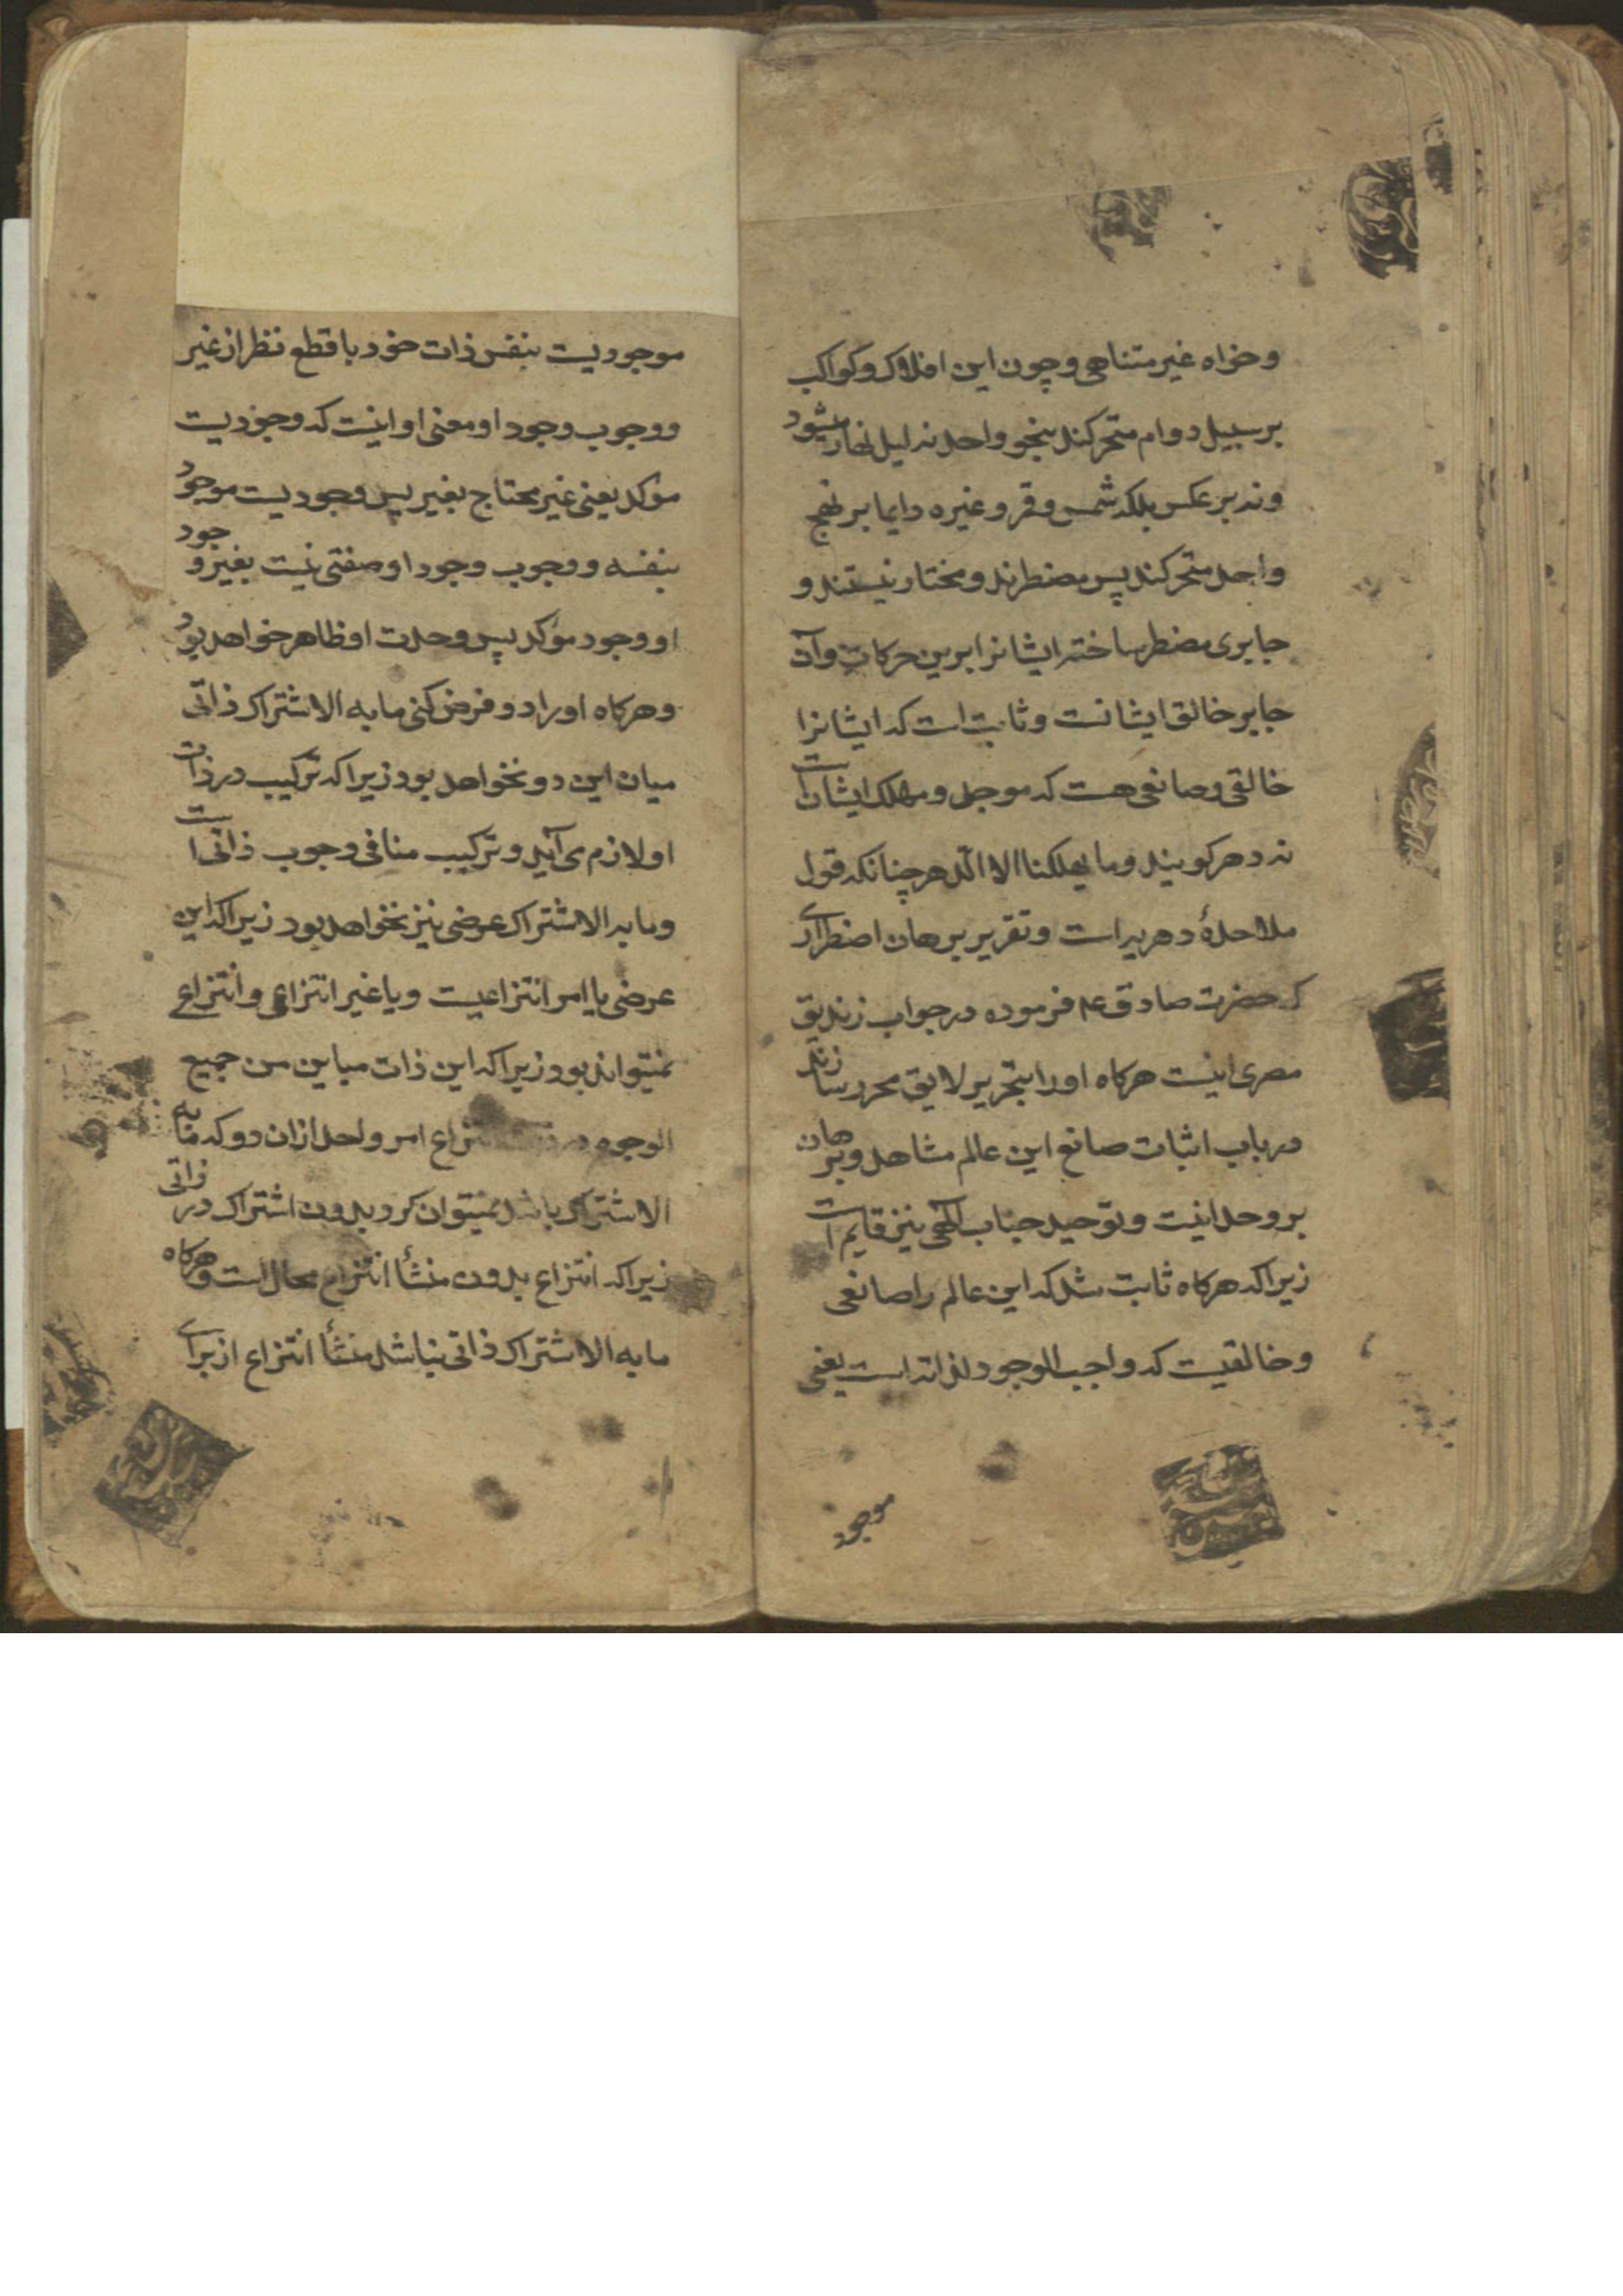 وخواه غیر متناهی وچون این افلاک وکواکب
بر سبیل دوام متحرکند بنحو واحد نه لیل نهار میشود
ونه بر عکس بلکه شمس وقمر وغیره دایما بر نهج
واحد متحرکند پس مضطرند ومختار نیستند و
جابری مضطر ساخته ایشانرا برین حرکات وآن
جابر خالق ایشانست وثابت است که ایشانرا
خالقی وصانعی هست که موجد ومهلک ایشان است
نه دهر کویند وما یهلکنا الا الدهر چنانکه قول
ملاحدهٔ دهریه است وتقریر برهان اضطراری
که حضرت صادق عم فرموده در جواب زندیق
مصری اینست هرکاه اورا بتحریر لایق محرر سازند
در باب اثبات صانع این عالم مشاهد وبرهان
بر وحدانیت وتوحید جناب الٓهی نیز قایم است
زیرا که هرکاه ثابت شد که این عالم را صانعی
وخالقیست که واجب الوجود لذاته است یعنی
موجود
موجودیست بنفس ذات خود با قطع نظر از غیر
ووجوب وجود او معنی او اینست که وجودیست
مؤکد یعنی غیر محتاج بغیر پس وجودیست موجود
بنفسه ووجوب وجود او صفتی نیست بغیر وجود
او وجود مؤکد پس وحدت او ظاهر خواهد بود
وهرکاه اورا دو فرض کنی ما به الاشتراک ذاتی
میان این دو نخواهد بود زیرا که ترکیب در ذات
او لازم می آید وترکیب منافی وجوب ذاتی است
وما به الاشتراک عرضی نیز نخواهد بود زیرا که این
عرضی یا امر انتزاعیست ویا غیر انتزاعی وانتزاعی
نمیتواند بود زیرا که این ذات مباین من جمیع
الوجوه در انتزاع امر واحد ازان دو که ما به
الاشتراک باشد نمیتوان کرد بدون اشتراک در ذاتی
زیرا که انتزاع بدون منشأ انتزاع محال است وهرکاه
ما به الاشتراک ذاتی نباشد منشأ انتزاع از برای